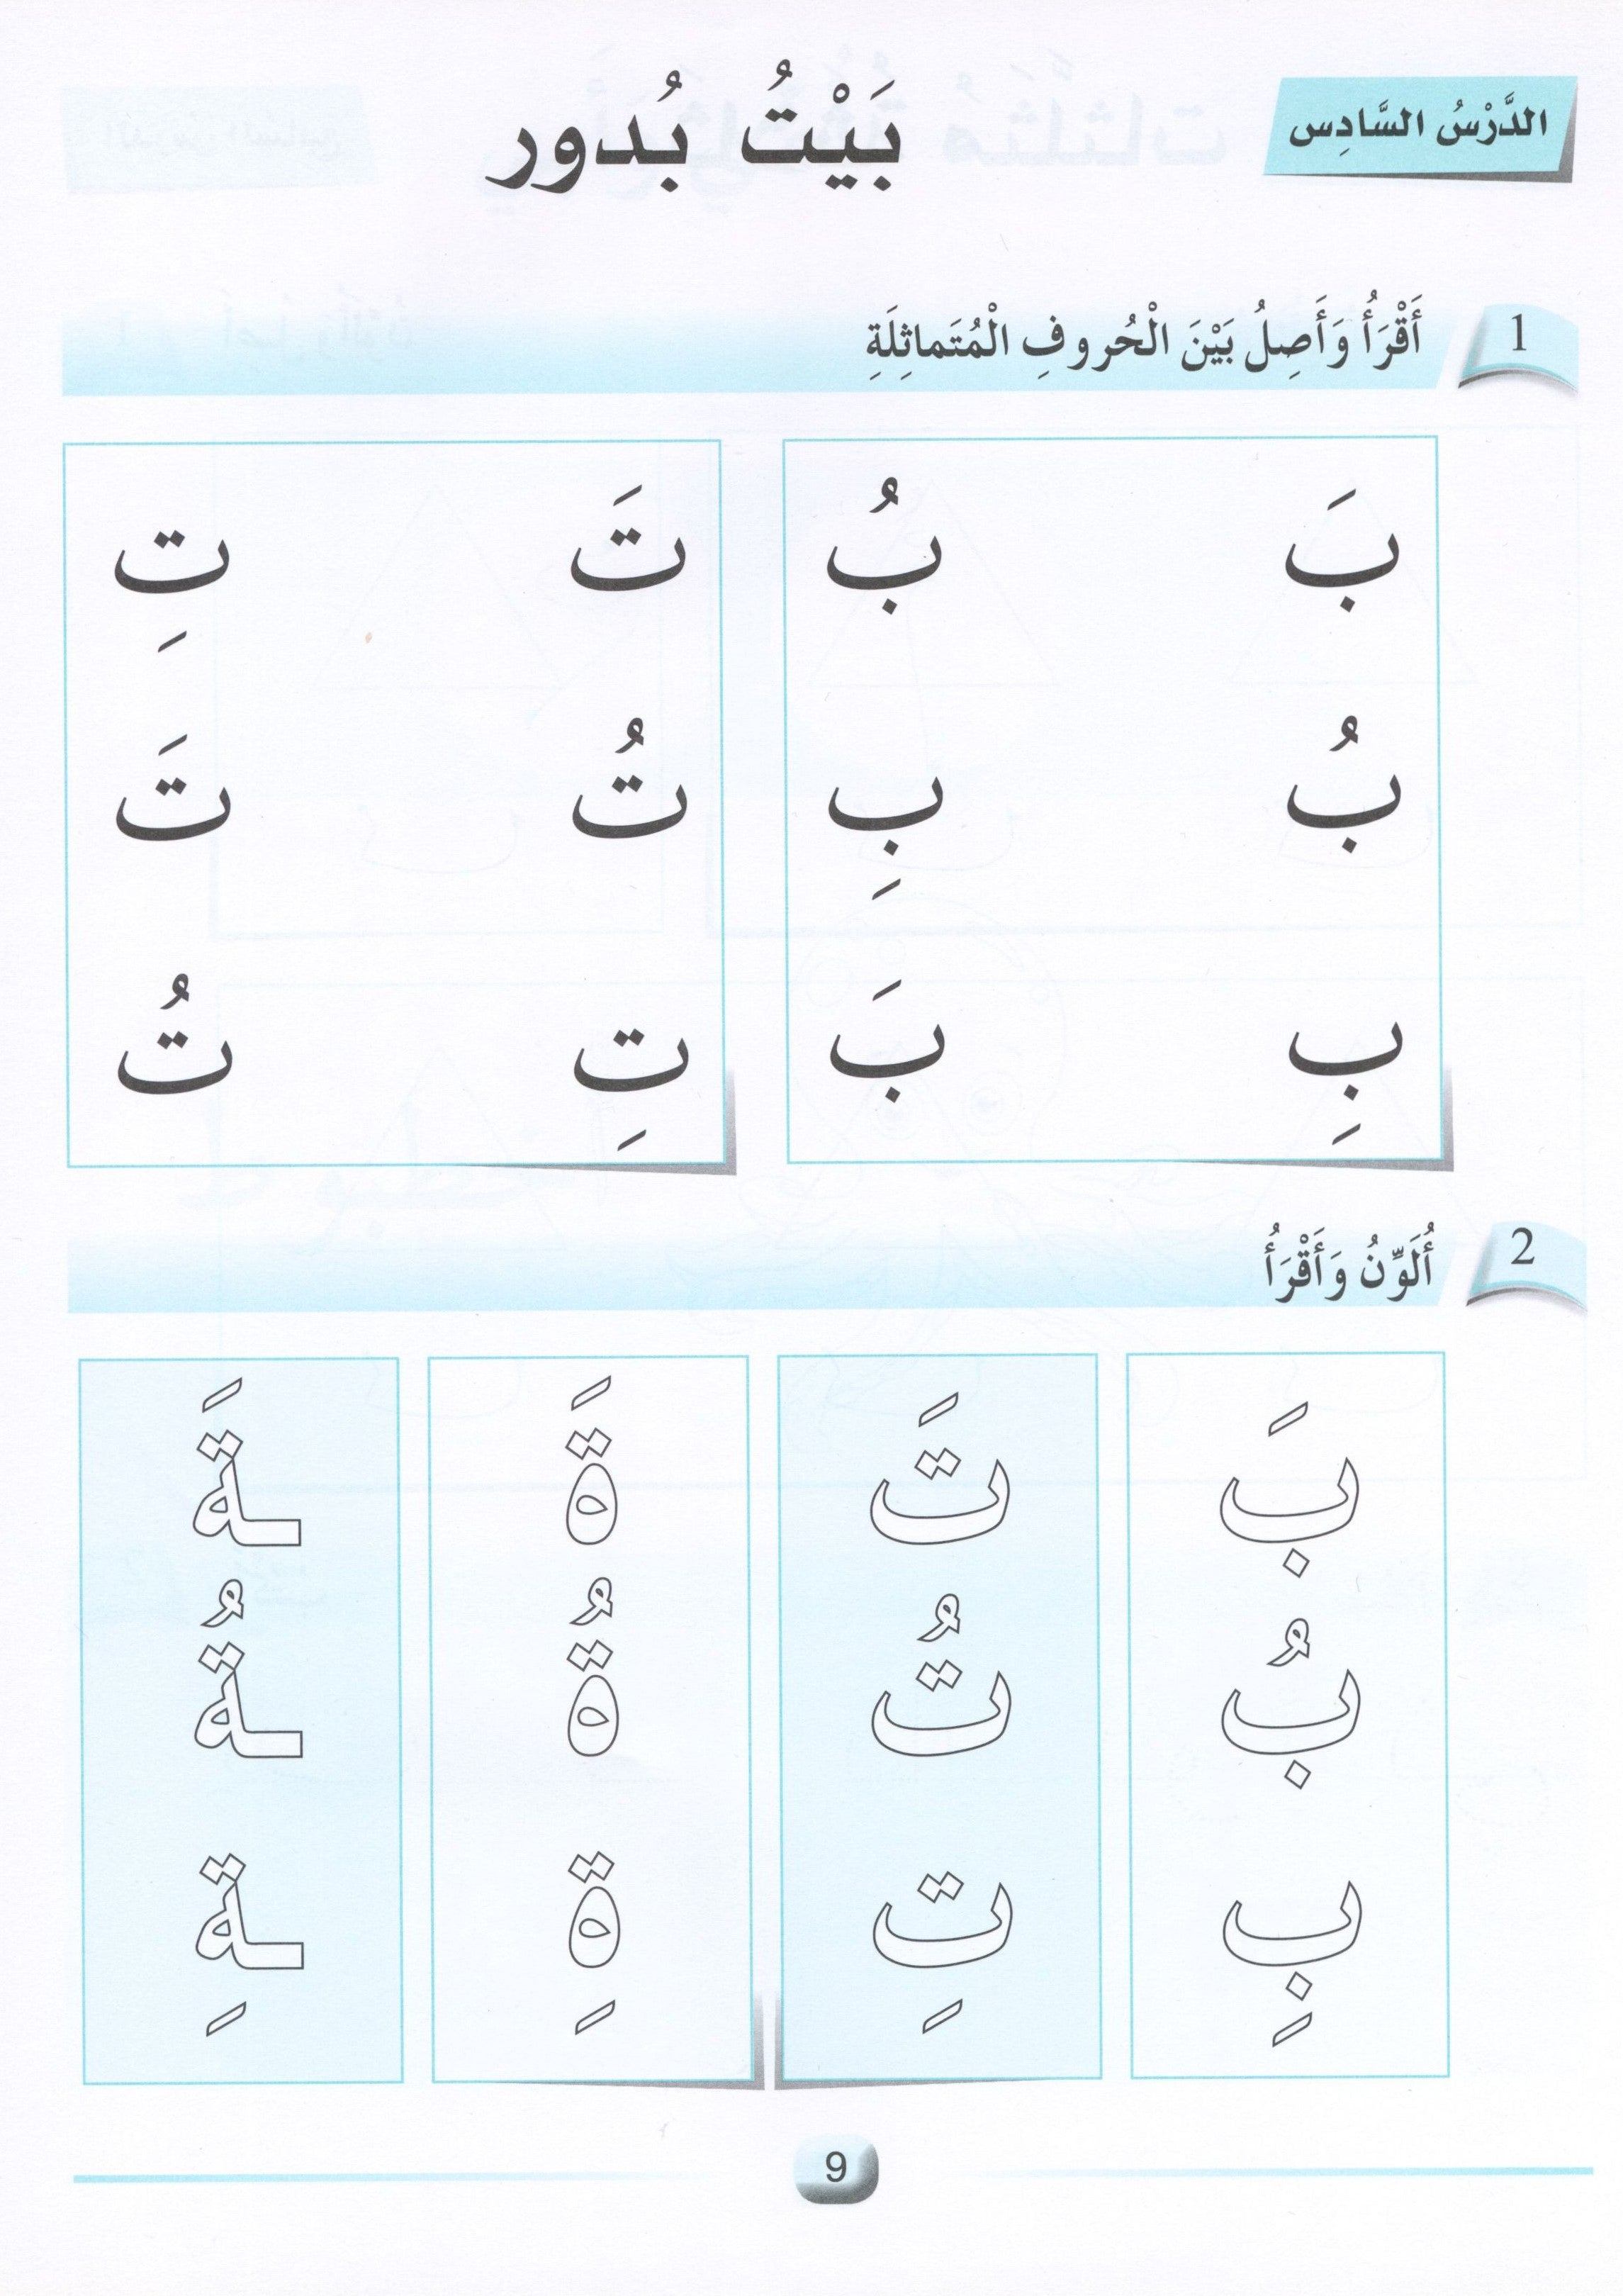 الدَّرْسُ السَّادِس
بَيْتُ بُدور
1 أَقْرَأُ وَأَصِلُ بَيْنَ الْحُروفِ الْمُتَماثِلَةِ
بَ بُ تَ تِ
بُ بِ تُ تَ
بِ بَ تِ تُ
2 أُلَوِّنُ وَأَقْرَأُ
بَ تَ ةَ ـةَ
بُ تُ ةُ ـةُ
بِ تِ ةِ ـةِ
9